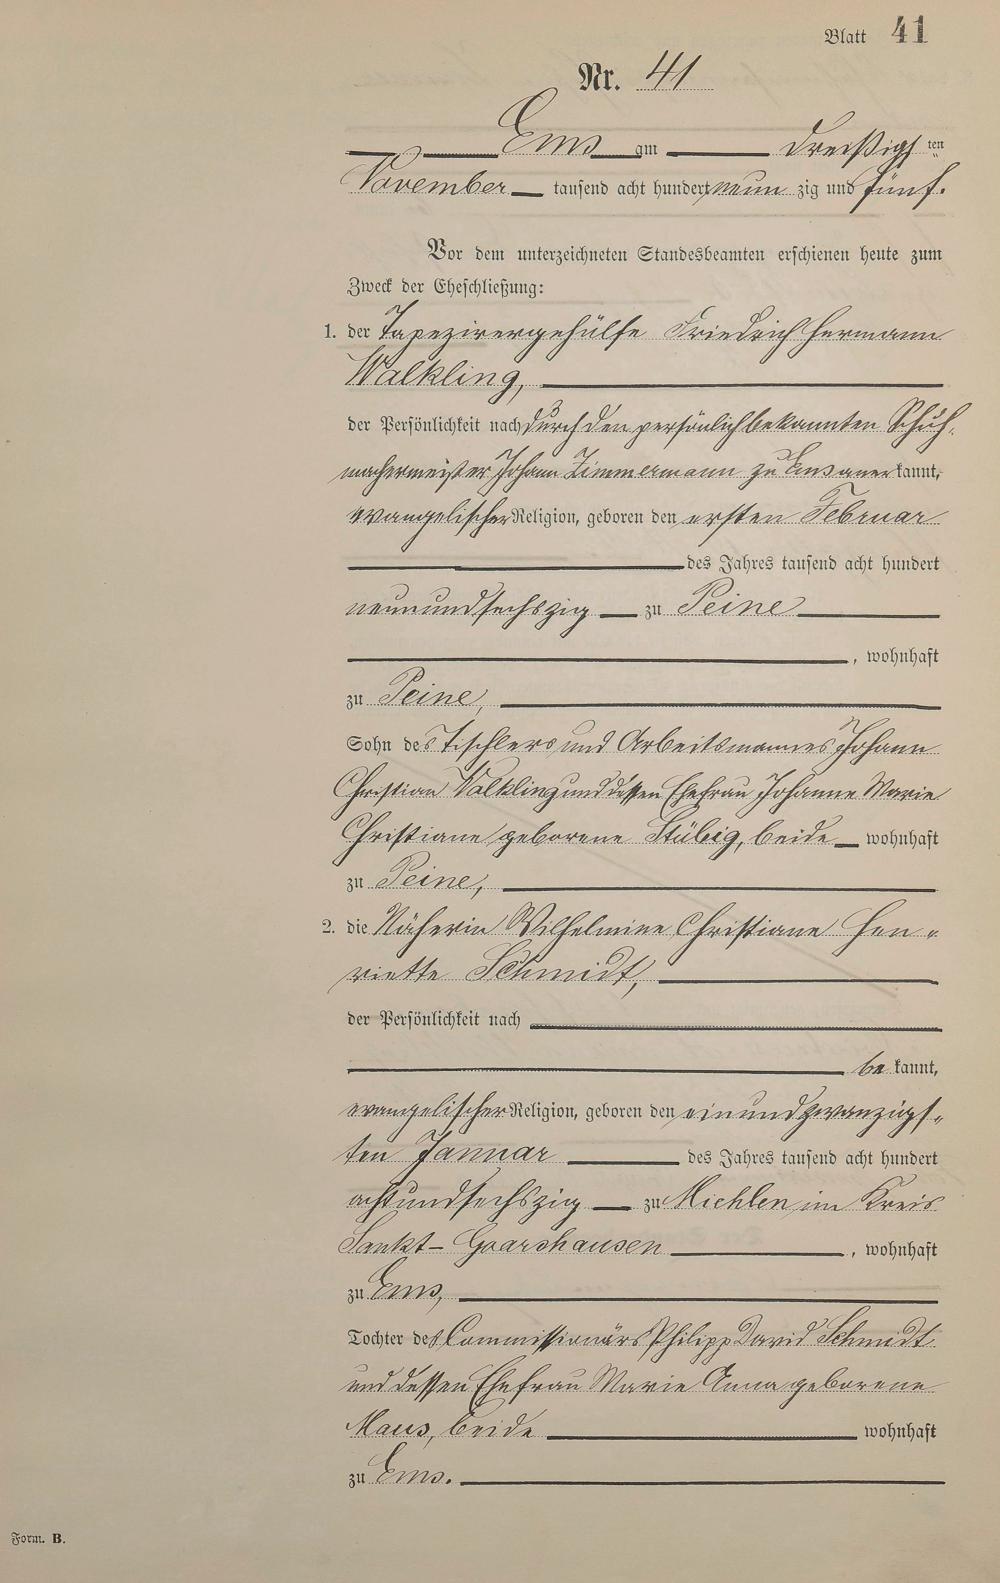 Blatt 41
Nr. 41
Ems am dreißigsten
November tausend acht hundert neun zig und fünf.
Vor dem unterzeichneten Standesbeamten erschienen heute zum
Zweck der Eheschließung:
1. der Tapezirergehülfe Friedrich Hermann
Walkling,
der Persönlichkeit nach durch den persönlich bekannten Schuh-
machermeister Johann Zimmermann zu Ems anerkannt,
evangelischer Religion, geboren den ersten Februar
des Jahres tausend acht hundert
neunundsechszig zu Peine
, wohnhaft
zu Peine,
Sohn des Tischlers und Arbeitsmannes Johann
Christian Walkling und dessen Ehefrau Johanne Marie
Christiane geborene Stübig, beide wohnhaft
zu Peine,
2. die Näherin Wilhelmine Christiane Hen-
riette Schmidt,
der Persönlichkeit nach
be kannt,
evangelischer Religion, geboren den einundzwanzigs-
ten Januar des Jahres tausend acht hundert
achtundsechszig zu Miehlen im Kreis
Sankt-Goarshausen , wohnhaft
zu Ems,
Tochter des Commissionärs Philipp David Schmidt
und dessen Ehefrau Marie Anna geborene
Maus, beide wohnhaft
zu Ems.
Form. B.